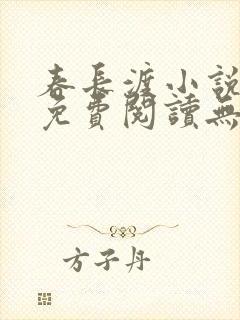 春長渡小說
免費閱讀無
方子丹